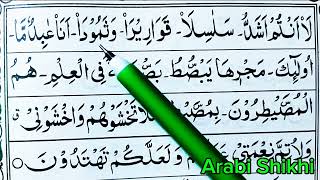 لَاۤ اَنْتُمْ اَشَدُّ - سَلٰسِلَا۟ - قَوَارِيْرَا۟ - وَثَمُوْدَا۟ - اَنَا عَبِدٌ مَّا
اُولٰٓئِكَ - مَجْرٖىهَا يَبْصُۜطُ - فِى الْعِلْمِ - هُمُ
الْمُصَۜيْطِرُوْنَ - تَخْشَوْهُمْ وَاخْشَوْنِىْ
وَلَعَلَّكُمْ تَهْتَدُوْنَ
Arabi Shikhi